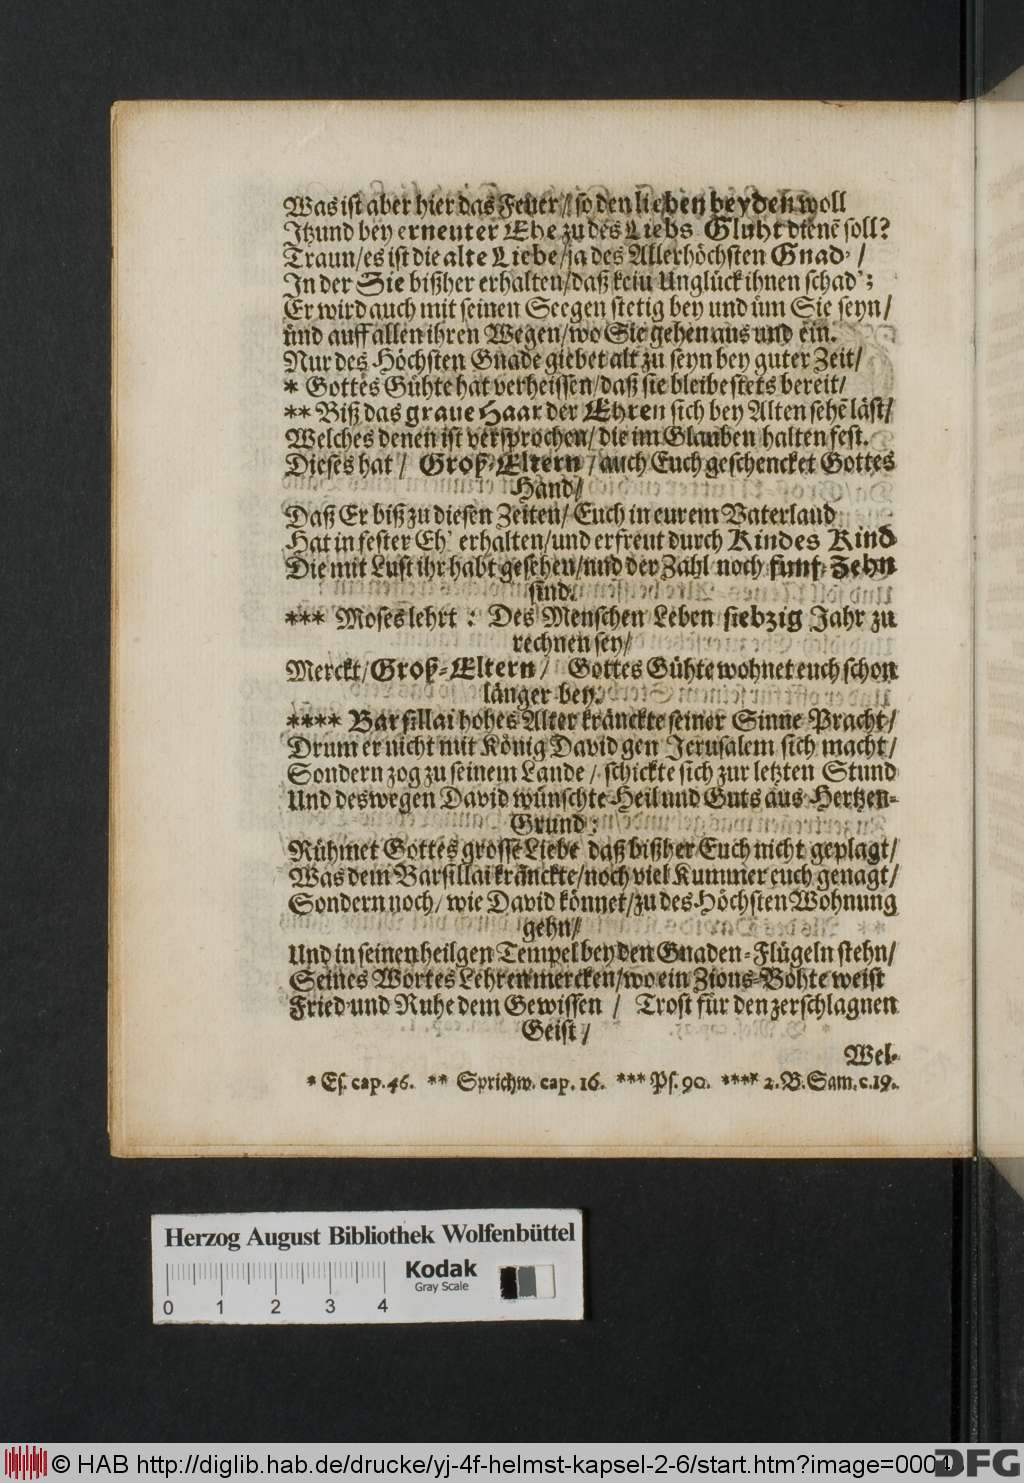 Was ist aber hier das Feuer/ so den lieben beyden woll
Itzund bey erneuter Ehe zu des Liebs Gluht dienẽ soll?
Traun/es ist die alte Liebe/ja des Allerhöchsten Gnad-/
In der Sie bißher erhalten/daß kein Unglück ihnen schad';
Er wird auch mit seinen Seegen stetig bey und üm Sie seyn/
Und auff allen ihren Wegen/wo Sie gehen aus und ein.
Nur des Höchsten Gnade giebet alt zu seyn bey guter Zeit/
* Gottes Gühte hat verheissen/daß sie bleibe stets bereit/
** Biß das graue Haar der Ehren sich bey Alten sehẽ läst/
Welches denen ist versprochen/die im Glauben halten fest.
Dieses hat / Groß-Eltern /auch Euch geschencket Gottes
Hand/
Daß Er biß zu diesen Zeiten/ Euch in eurem Vaterland
Hat in fester Eh' erhalten/und erfreut durch Kindes Kind
Die mit Lust ihr habt gesehen/und der Zahl noch funf-Zehn
sind.
*** Moses lehrt : Des Menschen Leben siebzig Jahr zu
rechnen sey/
Merckt/Groß-Eltern/ Gottes Gühte wohnet euch schon
länger bey.
**** Barsillai hohes Alter kränckte seiner Sinne Pracht/
Drum er nicht mit König David gen Jerusalem sich macht/
Sondern zog zu seinem Lande / schickte sich zur letzten Stund
Und deswegen David wünschte Heil und Guts aus Hertzen-
Grund:
Rühmet Gottes grosse Liebe daß bißher Euch nicht geplagt/
Was dem Barsillai kränckte/noch viel Kummer euch genagt/
Sondern noch/ wie David könnet/zu des Höchsten Wohnung
gehn/
Und in seinen heilgen Tempel bey den Gnaden-Flügeln stehn/
Seines Wortes Lehren mercken/wo ein Zions-Bohte weist
Fried-und Ruhe dem Gewissen / Trost für den zerschlagnen
Geist/
Wel-
* Es. cap. 46. ** Sprichw. cap. 16. *** Ps. 90. **** 2. B. Sam. c. 19.
Herzog August Bibliothek Wolfenbüttel
Kodak
Gray Scale
0 1 2 3 4
© HAB http://diglib.hab.de/drucke/yj-4f-helmst-kapsel-2-6/start.htm?image=0004
DFG